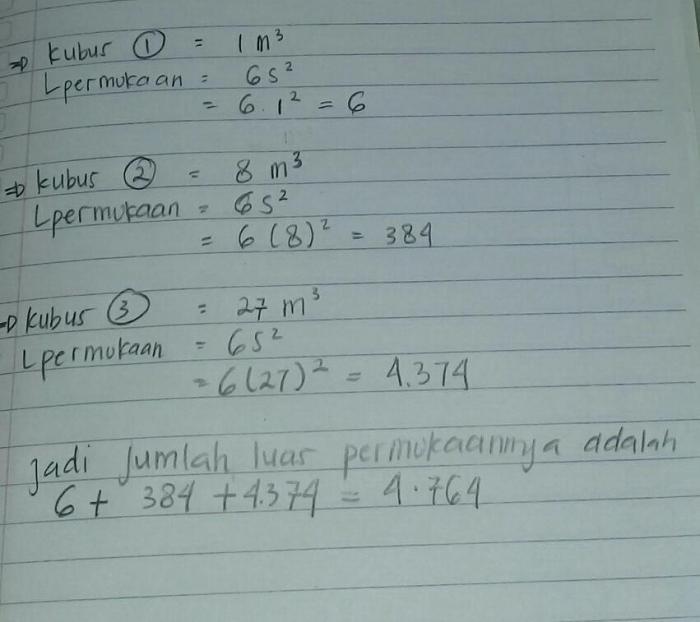 ⇒ Kubus ① = 1 m³
Lpermukaan = 6s²
= 6.1² = 6
⇒ Kubus ② = 8 m³
Lpermukaan = 6s²
= 6(8)² = 384
⇒ Kubus ③ = 27 m³
Lpermukaan = 6s²
= 6(27)² = 4.374
Jadi Jumlah luas permukaannya adalah
6 + 384 + 4.374 = 4.764